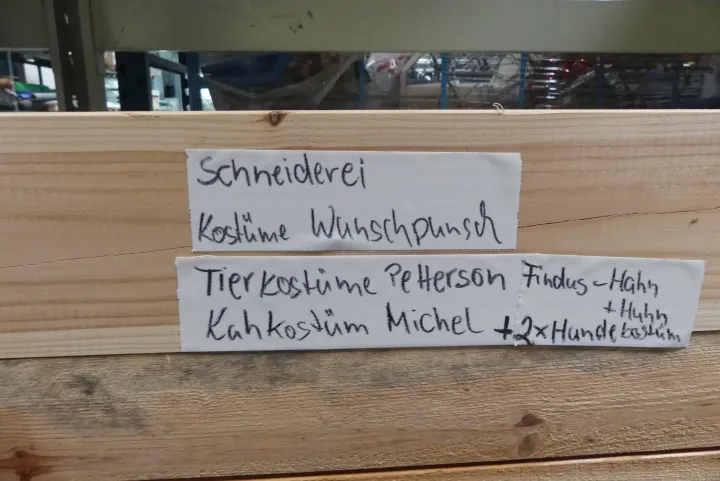 Schneiderei
Kostüme Wunschpunsch
Tierkostüme Petterson Findus-Hahn
+ Huhn
Kahkostüm Michel + 2x Hundekostüm